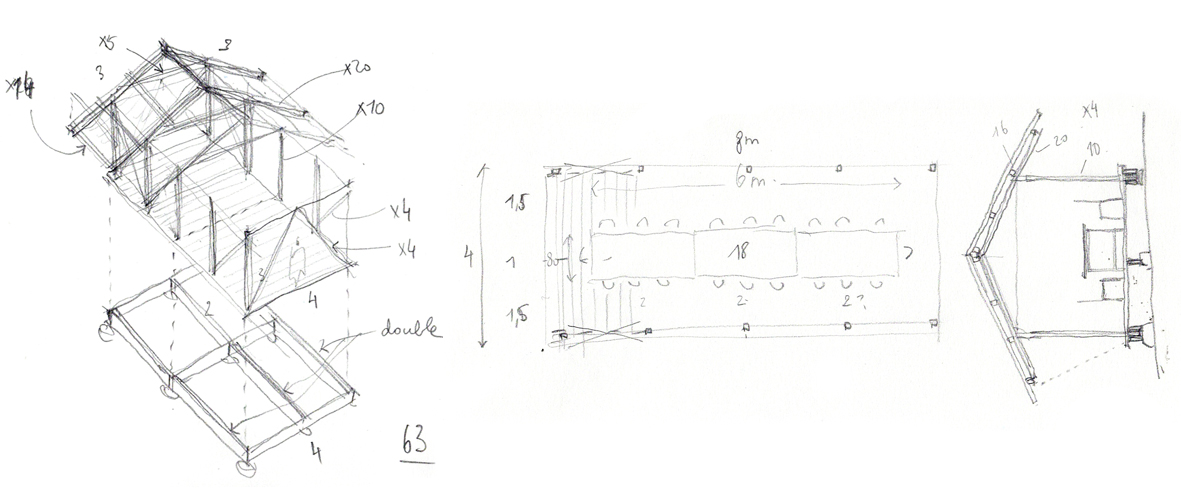 x5
3
3
x20
x10
x4
x4
3
4
2
double
2
4
63
8m
6m.
1,5
4
1
80
18
1,5
2
2
2?
x4
16
20
10